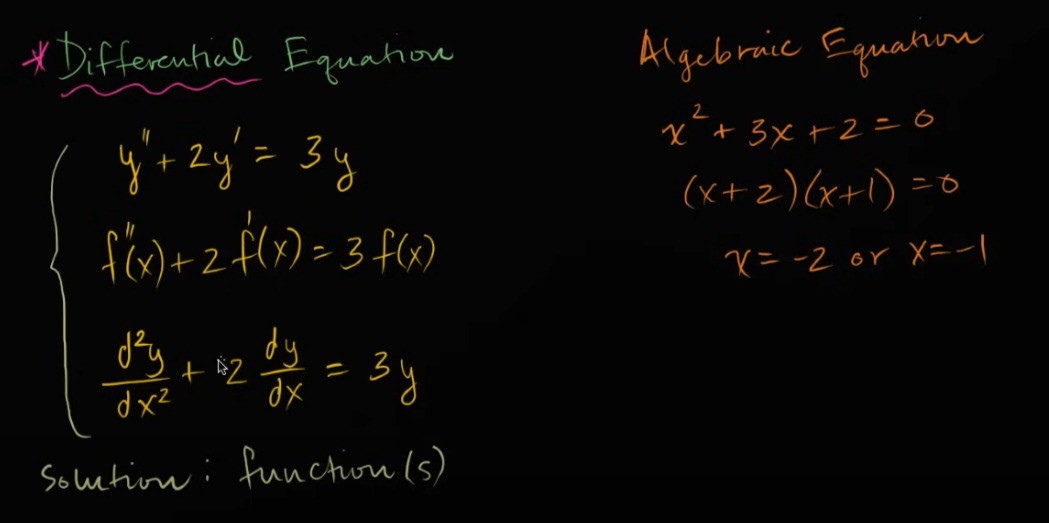 * Differential Equation
y'' + 2y' = 3y
f''(x) + 2f'(x) = 3f(x)
d²y/dx² + 2 dy/dx = 3y
Solution: function(s)
Algebraic Equation
x² + 3x + 2 = 0
(x+2)(x+1) = 0
x = -2 or x = -1